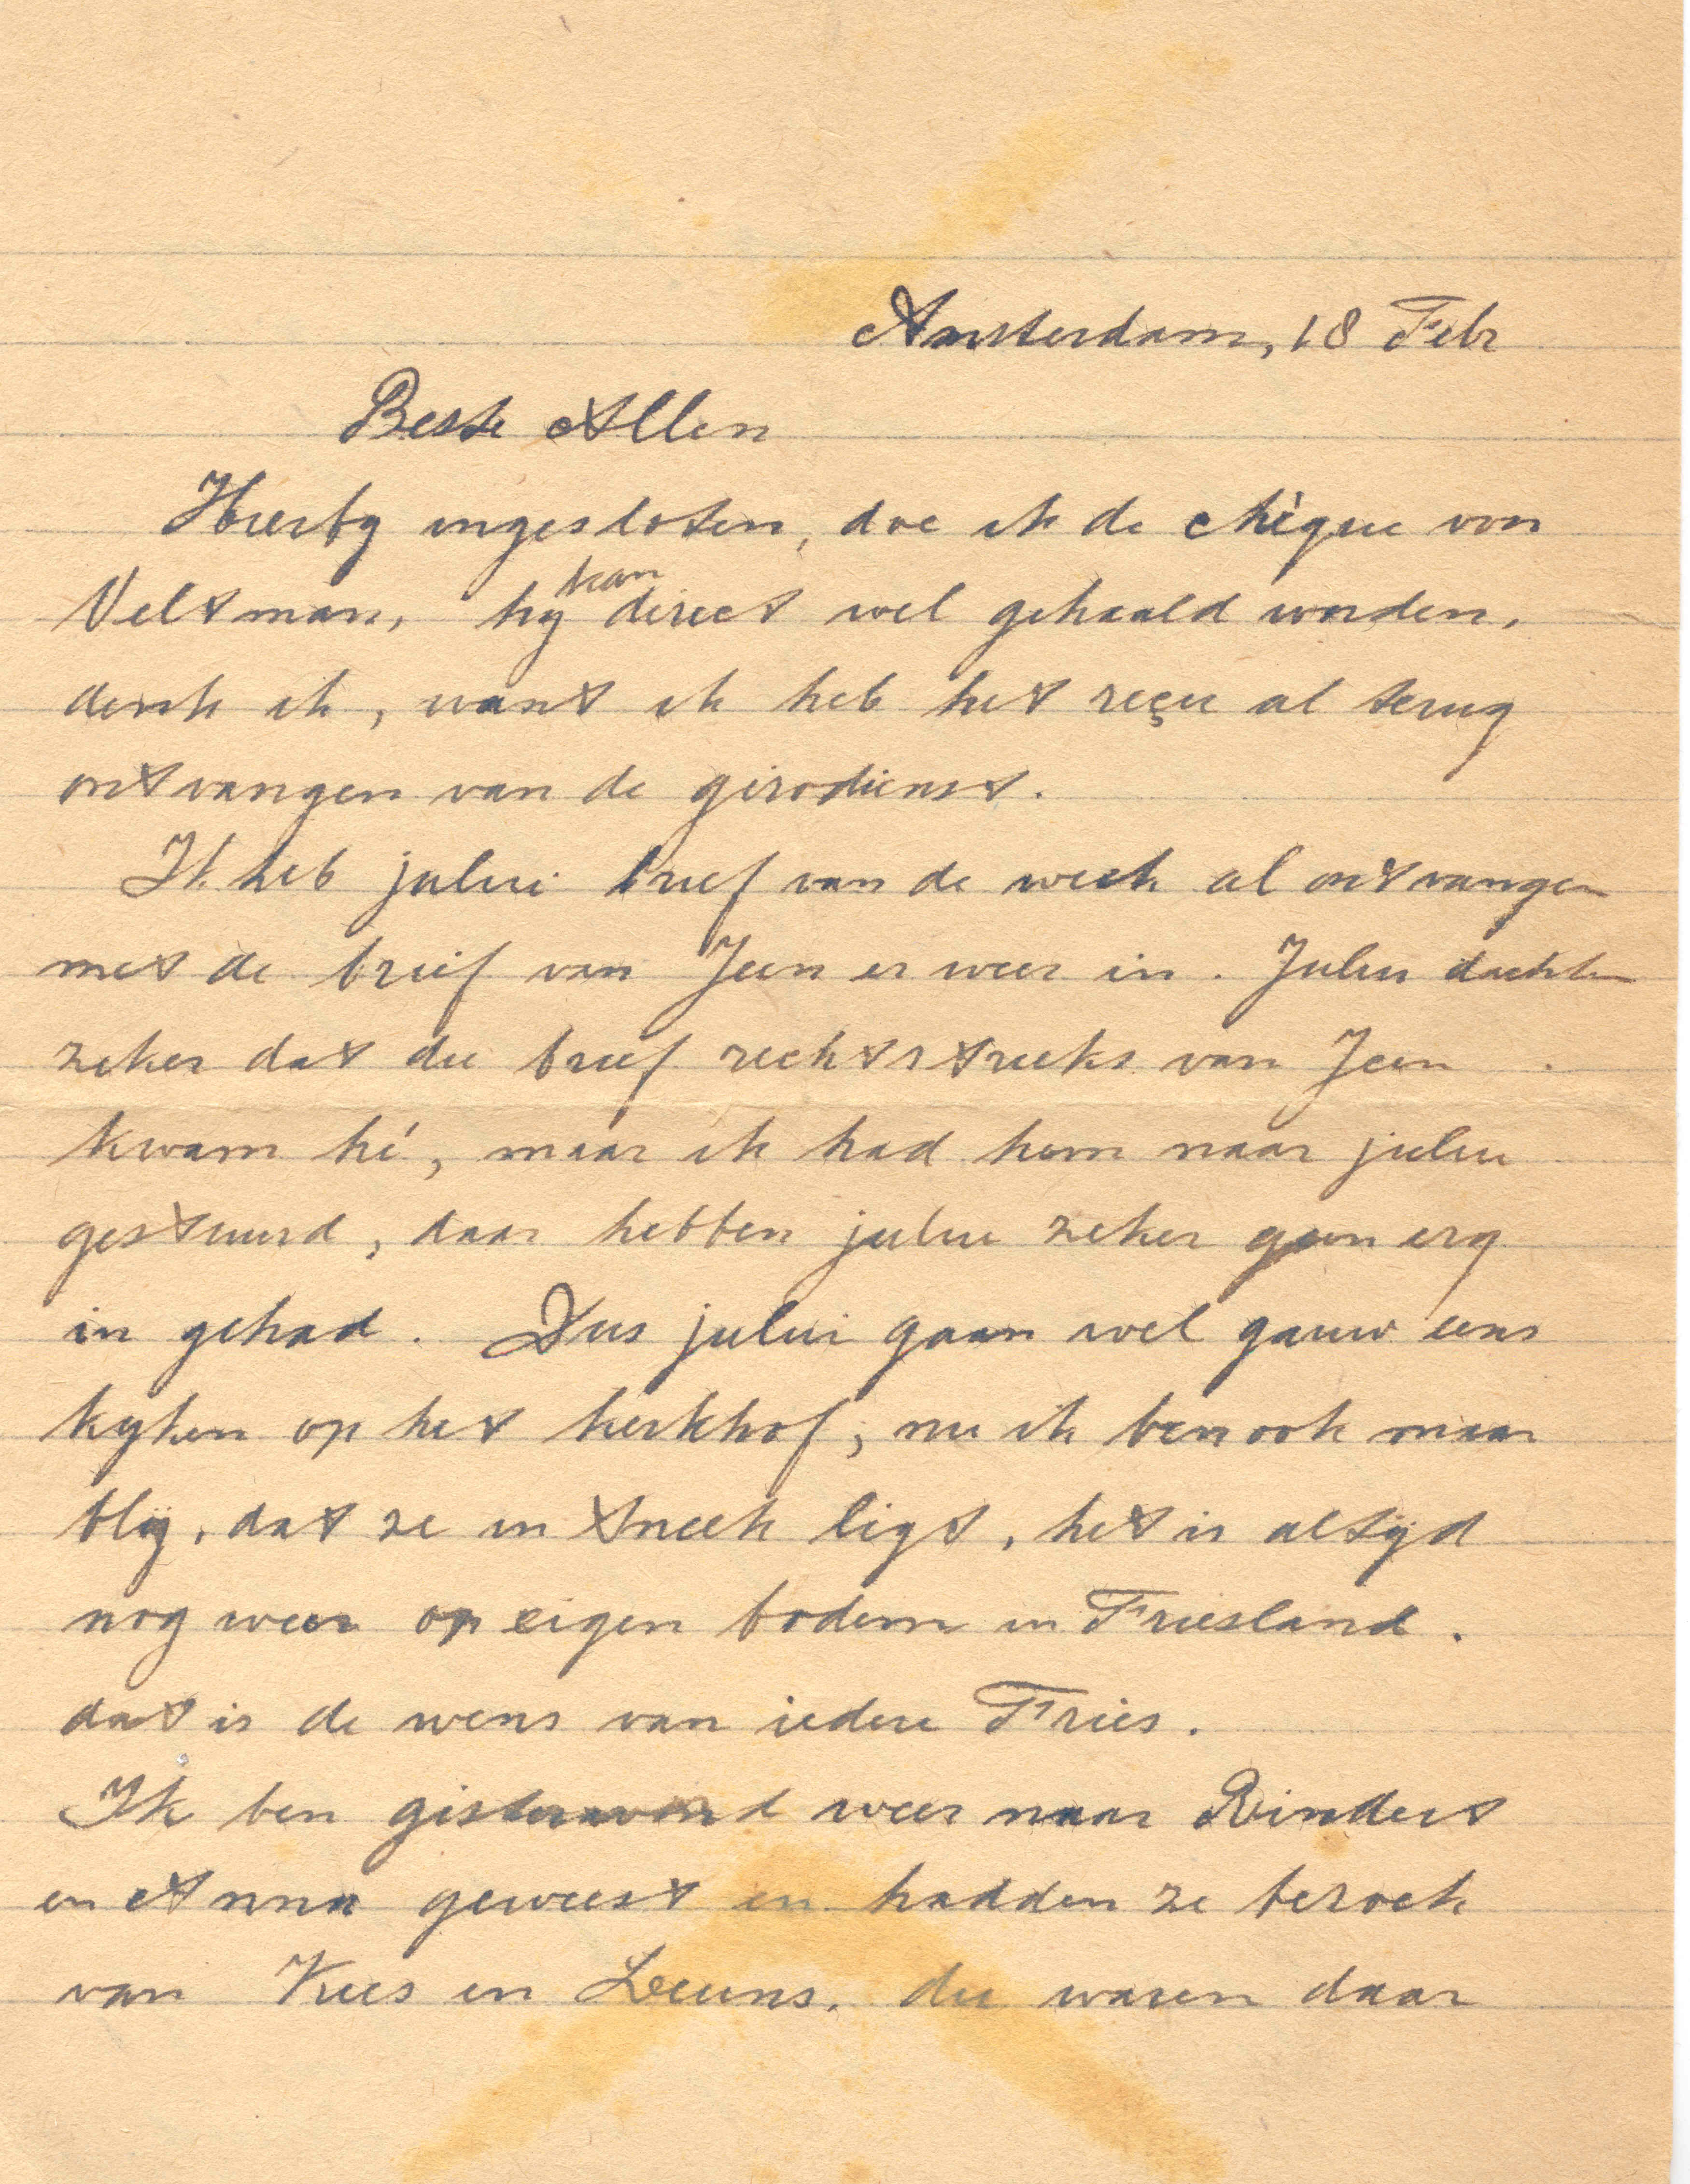 Amsterdam, 18 Febr
Beste Allen
Hierby ingesloten, doe ik de chèque von
Veltman, hy kan direct wel gehaald worden,
denk ik, want ik heb het reçu al terug
ontvangen van de girodienst.
Ik heb jului brief van de week al ontvangen
met de brief van Jeen er weer in. Jului dachten
zeker dat die brief rechtstreeks van Jeen
kwam hé, maar ik had hem naar jului
gestuurd, daar hebben jului zeker geen erg
in gehad. Dus jului gaan wel gauw eens
kyken op het kerkhof, nu ik ben ook maar
blij, dat ze in Sneek ligt, het is altijd
nog weer op eigen bodem in Friesland.
dat is de wens van iedere Fries.
Ik ben gisteravond weer naar Rindert
en Anna geweest en hadden ze bezoek
van Kees en Leuns, die waren daar